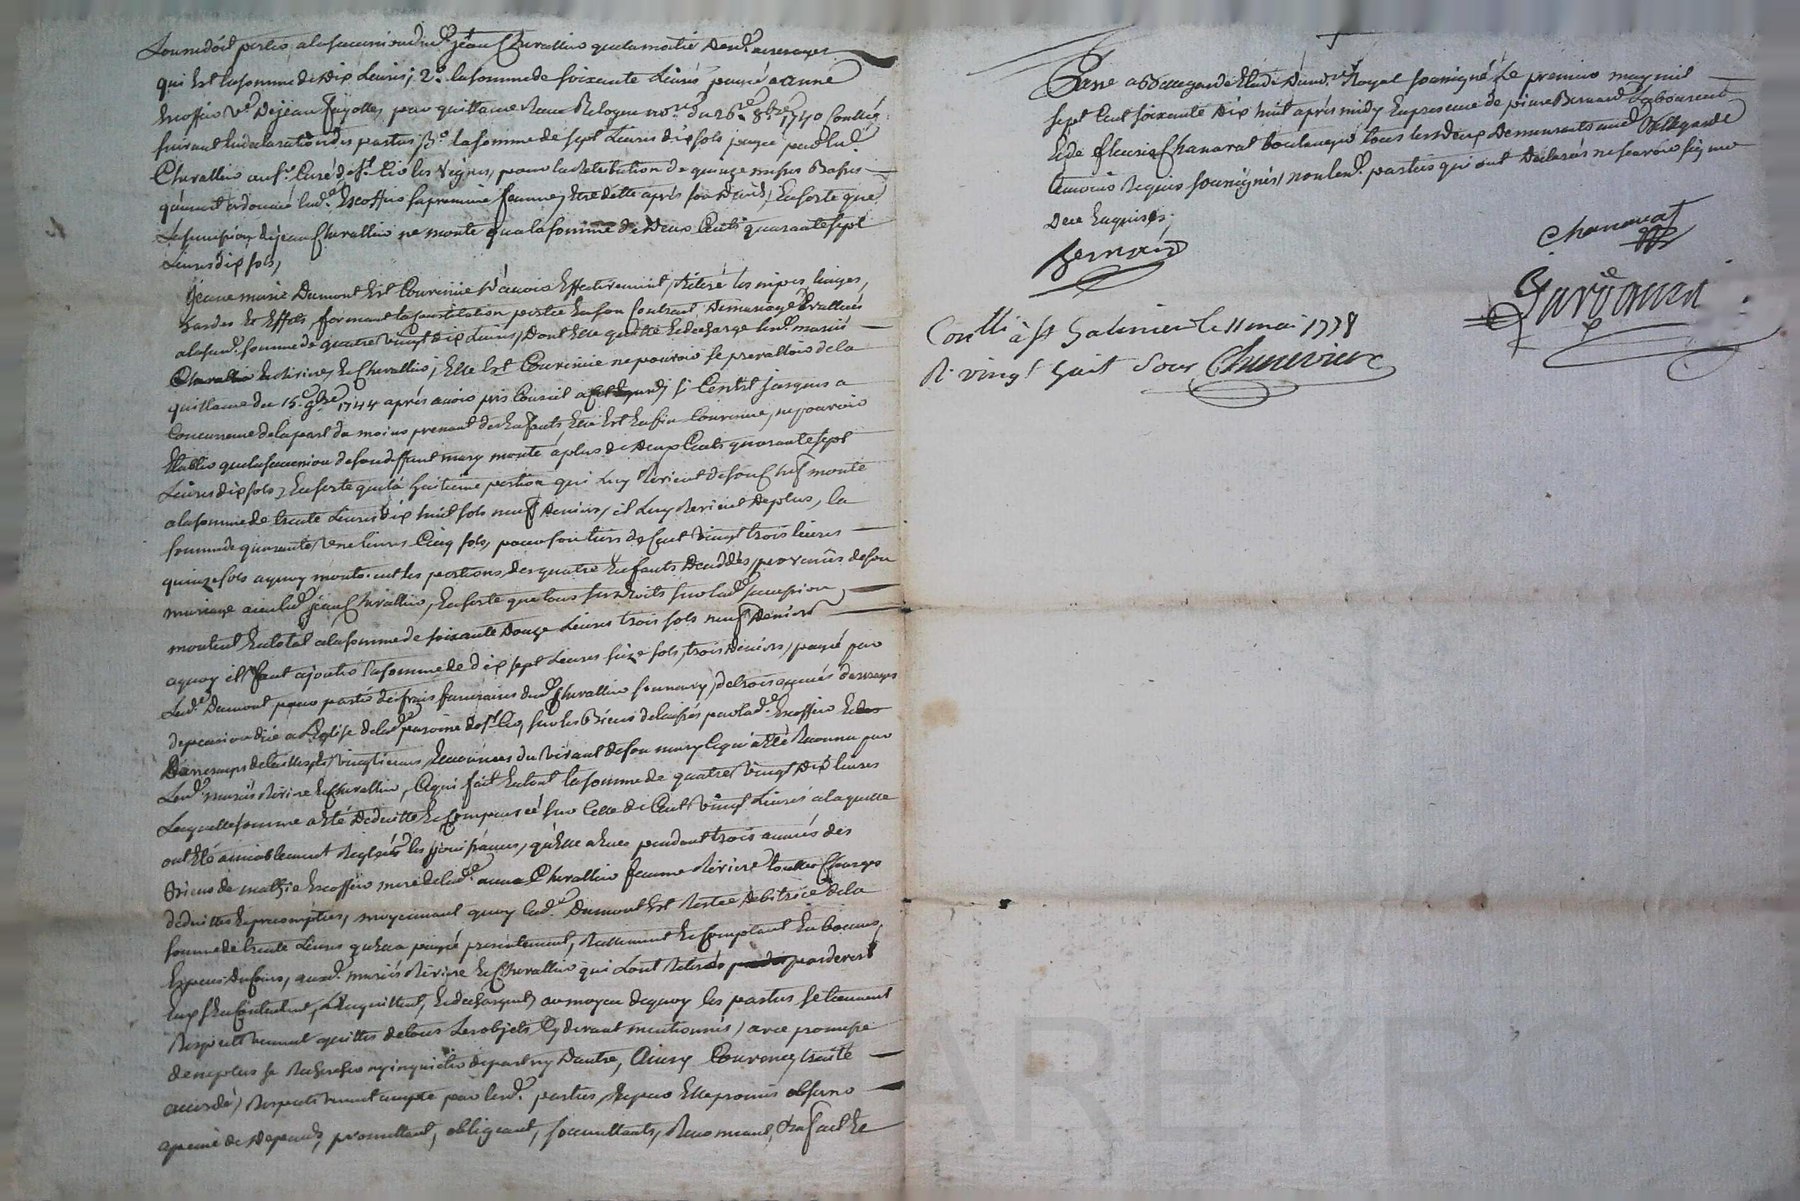 qui est la somme de dix Livres; 2.° la somme de soixante Livres payée a anne
Escoffier v.e de jean fayolle, par quittance Reçue Relogue no.re du 26.e 8.bre 1740 Contlée
suivant la declaration des parties, 3.° la somme de sept Livres dix sols payée par led.
Chevallier au s.r Curé de s.t Cir les vignes, pour la Retribution de quinze messes Basses
qu'avoit ordonné lad.e Escoffier sa premiere femme, etre dittes après son Deces, Ensorte que
La succession de jean Chevallier ne monte qua la somme de Deux Cents quarante sept
Livres dix sols,
Jeane marie Dumont Est Convenüe d'avoir Effectivement Retiré les nipes, linges,
hardes Et Effets, formant la constitution portée En son Contrant De mariage Evallués
a la sud.e somme de quatre vingt dix Livres, Dont Elle quitte Et decharge lesd. mariés
Riviere Et Chevallier; Elle Est Convenüe ne pouvoir se prevalloir de la
quittance du 15.e 9.bre 1744 après avoir pris Conseil si Ce n'est jusques a
Concurrance de la part du moins prenant des Enfants, Elle Est Enfin Convenüe, ne pouvoir
Etablir que la succession de son deffunt mary monte a plus de Deux Cents quarante sept
Livres dix sols, Ensorte que la huitieme portion qui Luy Revient de son Chef monte
a la somme de trente Livres dix huit sols neuf Deniers, il Luy Revient De plus, la
somme de quarante Une livres Cinq sols, pour son tiers de Cent vingt trois livres
quinze sols a quoy montoient les portions des quatre Enfants Decedés, provenus de son
mariage avec led. jean Chevallier, Ensorte que tous ses droits sur lad.e succession
montent En total a la somme de soixante Douze Livres trois sols neuf Deniers
a quoy il faut ajouter la somme de dix sept Livres seize sols, trois Deniers, payée par
Lad.e Dumont pour partie des frais funeraires dud. Chevallier son mary, de trois années d'arrerages
de pension düe a L'Eglise de lad.e paroisse de s.t Cir, sur les Biens delaissés par lad.e Escoffier
Lesd. mariés Riviere Et Chevallier, Ce qui fait En tout la somme de quatre vingt Dix livres
Laquelle somme a Eté Deduitte Et Compensée sur Celle de Cent vingt Livres a laquelle
ont Eté amiablement Reglées les jouissances, qu'Elle a Eues pendant trois années des
Biens de mathie Escoffier mere de lad.e anne Chevallier femme Riviere toutes Charges
deduittes Et precomptées, moyennant quoy lad.e Dumont Est Restée Debitrice de la
somme de trente Livres qu'Elle a payée presentement, Reellement Et Comptant En bonnes
Especes Du Cours, auxd. mariés Riviere Et Chevallier qui L'ont Retirée par devers
Eux s'En Contentent, L'En quittent, Et dechargent, au moyen de quoy les parties se tiennent
Respectivement quittes de tous Les objets Cy devant mentionnés, avec promesse
de ne plus se Rechercher ny inquieter de part ny Dautre, Ainsy Convenu, traité
accordé, Respectivement accepté par lesd. parties, Et pour Elle promis observer
a peine de Depends, promettant, obligeant, soumettants, Renonceant, &
Fait a Bellegarde Etude Du no.re Royal soussigné Le premier may mil
sept Cent soixante Dix huit après midy En presence de pierre Bernard Laboureur
Et de fleurie Chanavat boulanger tous les deux Demeurants aud. Bellegarde
temoins Requis soussignés, non lesd. parties qui ont Declarés ne sçavoir signer
De ce Enquises.
Bernard
Chanavat
Contlé à St Galmier le 11 mai 1778
R. vingt huit sous Chenevier